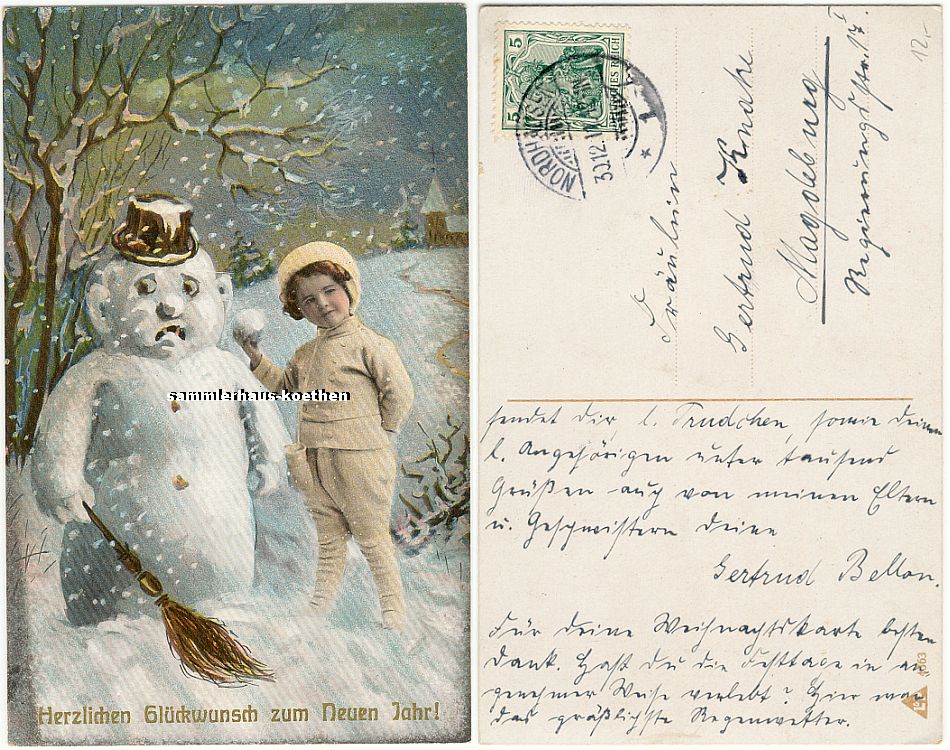 sammlerhaus-koethen
Herzlichen Glückwunsch zum Neuen Jahr!
5 5
DEUTSCHES REICH
NORDH
30.12.11
12,-
Fräulein
Gertrud Knake
Magdeburg
Regierungsstr. 17 I
sendet dir l. Trudchen, sowie deinen
l. Angehörigen unter tausend
Grüßen auch von meinen Eltern
u. Geschwistern deine
Gertrud Bellon.
Für deine Weihnachtskarte besten
Dank. Hast du die Festtage in an
genehmer Weise verlebt? Hier war
das gräßlichste Regenwetter.